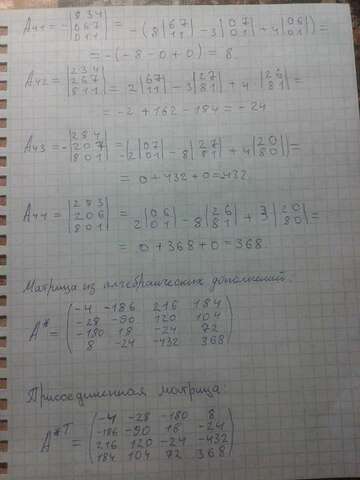 A₄₁ = -|8 3 4| = -(8|6 7| - 3|0 7| + 4|0 6|) =
|0 6 7| |1 1| |0 1| |0 1|
|0 1 1|
= -(-8 - 0 + 0) = 8.
A₄₂ = |2 3 4| = 2|6 7| - 3|2 7| + 4|2 6| =
|2 6 7| |1 1| |8 1| |8 1|
|8 1 1|
= -2 + 162 - 184 = -24
A₄₃ = -|2 8 4| = -2|0 7| - 8|2 7| + 4|2 0| =
|2 0 7| |0 1| |8 1| |8 0|
|8 0 1|
= 0 + 432 + 0 = 432.
A₄₄ = |2 8 3| = 2|0 6| - 8|2 6| + 3|2 0| =
|2 0 6| |0 1| |8 1| |8 0|
|8 0 1|
= 0 + 368 + 0 = 368.
Матрица из алгебраических дополнений:
A* = (-4 -186 216 184
-28 -90 120 104
-180 18 -24 72
8 -24 -432 368)
Присоединенная матрица:
A*ᵀ = (-4 -28 -180 8
-186 -90 18 -24
216 120 -24 -432
184 104 72 368)